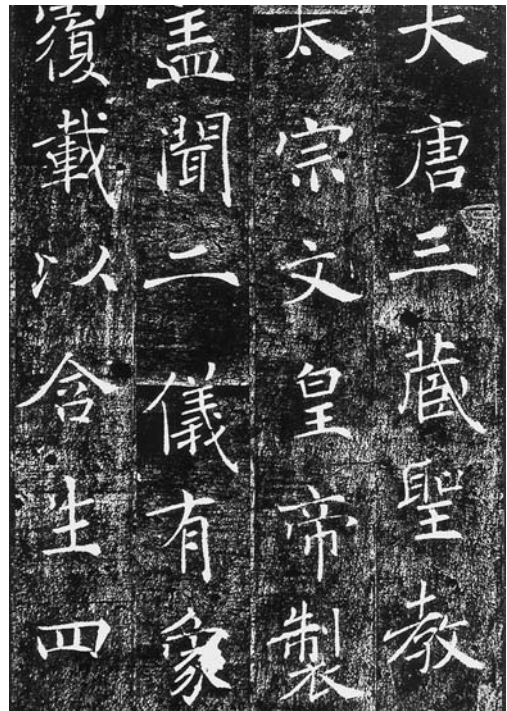 大唐三藏聖教
太宗文皇帝製
蓋聞二儀有象
覆載以含生四